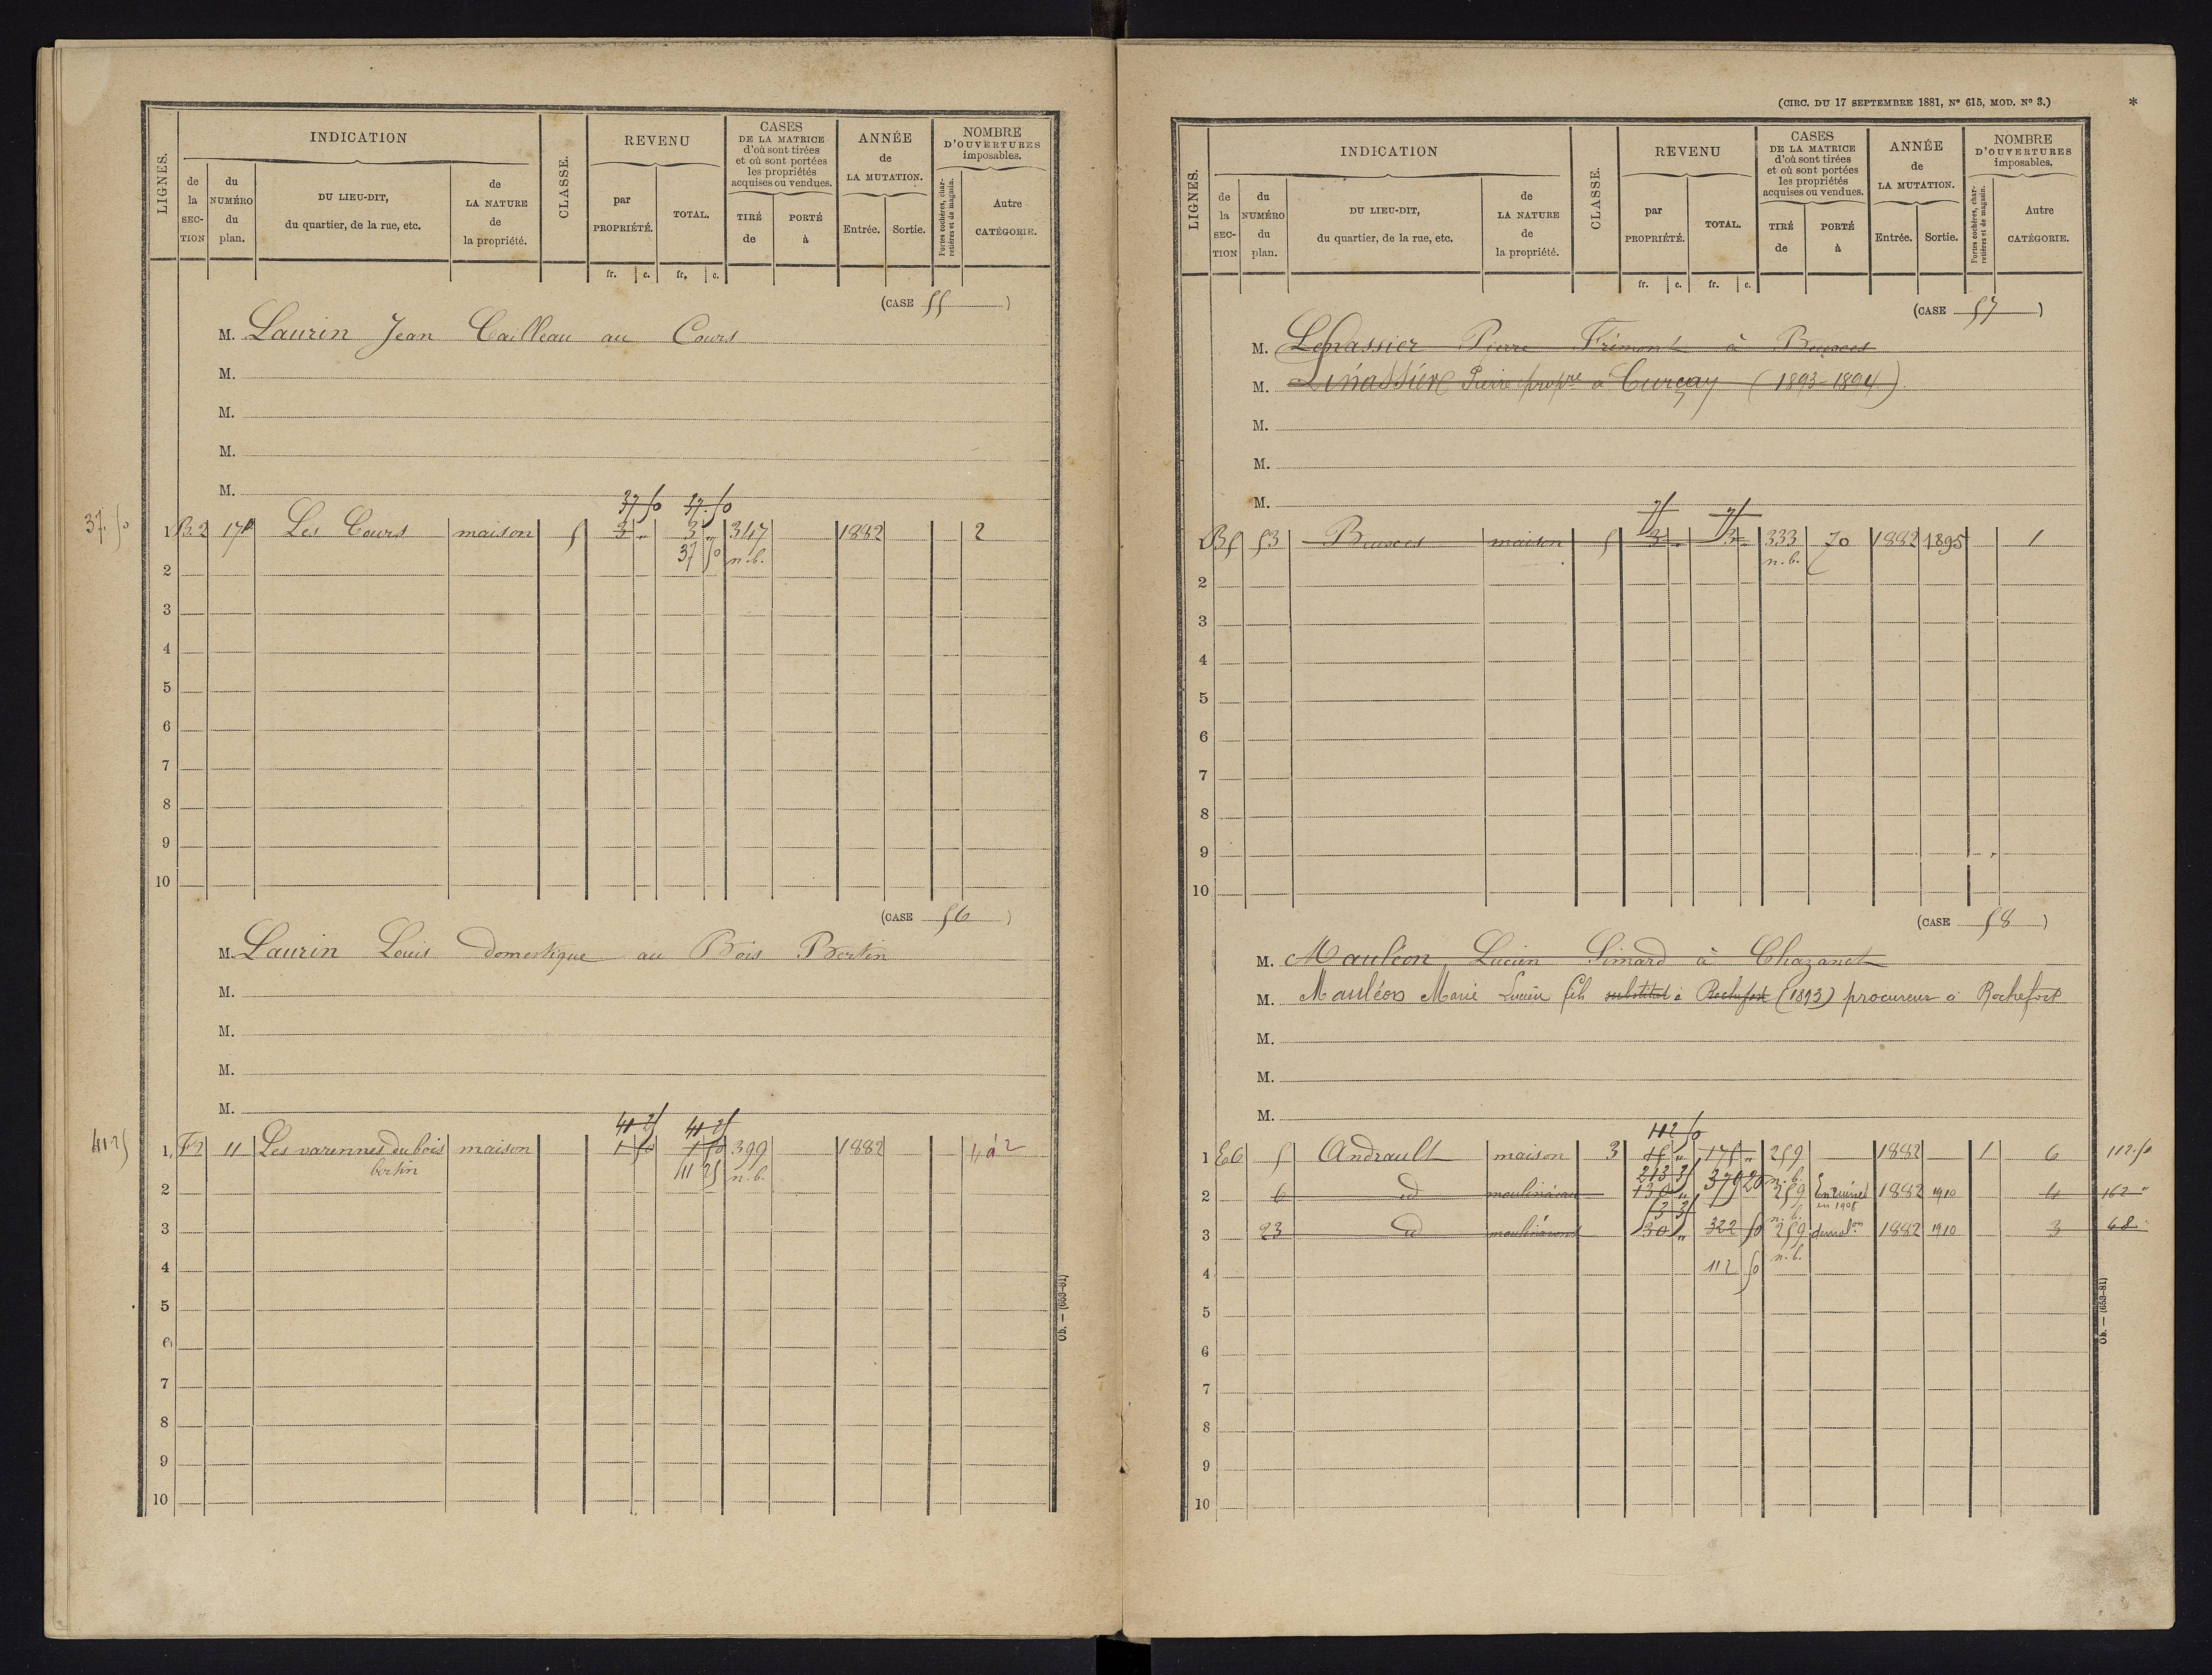 LIGNES.
INDICATION
de la SECTION
du NUMÉRO du plan.
DU LIEU-DIT, du quartier, de la rue, etc.
de LA NATURE de la propriété.
CLASSE.
REVENU
par PROPRIÉTÉ.
TOTAL.
fr. c. fr. c.
CASES DE LA MATRICE d'où sont tirées et où sont portées les propriétés acquises ou vendues.
TIRÉ de
PORTÉ à
ANNÉE de LA MUTATION.
Entrée. Sortie.
NOMBRE D'OUVERTURES imposables.
Portes cochères, charretières et de magasin.
Autre CATÉGORIE.
(CASE 55)
M. Laurin Jean Cailleau au Cours
M.
M.
M.
M.
37 50 37.50
37.50 1 B2 17 Les Cours maison 5 3 " 3 " 347 1882 2
37 50 n.b.
2
3
4
5
6
7
8
9
10
(CASE 56)
M. Laurin Louis domestique au Bois Bertin
M.
M.
M.
M.
41 25 41 25
41.25 1 F2 11 Les varennes du bois maison 1 50 1 50 399 1882 2
bertin 41 25 n.b.
2
3
4
5
6
7
8
9
10
Ob. — (653-81)
(CIRC. DU 17 SEPTEMBRE 1881, Nº 615, MOD. Nº 3.) *
LIGNES.
INDICATION
de la SECTION
du NUMÉRO du plan.
DU LIEU-DIT, du quartier, de la rue, etc.
de LA NATURE de la propriété.
CLASSE.
REVENU
par PROPRIÉTÉ.
TOTAL.
fr. c. fr. c.
CASES DE LA MATRICE d'où sont tirées et où sont portées les propriétés acquises ou vendues.
TIRÉ de
PORTÉ à
ANNÉE de LA MUTATION.
Entrée. Sortie.
NOMBRE D'OUVERTURES imposables.
Portes cochères, charretières et de magasin.
Autre CATÉGORIE.
(CASE 57)
M. Pierre Frémont à
M. Linassière Pierre propre à Curçay (1893-1894)
M.
M.
M.
B5 53 maison 5 3 3 333 70 1882 1895 1
n.b.
2
3
4
5
6
7
8
9
10
(CASE 58)
M. Mauléon Lucien Simard à Chazanet
M. Mauléon Marie Lucien fils substitut à Rochefort (1893) procureur à Rochefort
M.
M.
M.
112 50
1 E6 5 Andrault maison 3 " 175 " 259 1882 1 6 112.50
379 20 n.b.
2 6 id moulin à eau 130 " 259 En ruines 1882 1910 4 162 "
en 1908
n.b.
3 23 id 30 " 322 50 259 1882 1910 3 68 "
4 112 50 n.b.
5
6
7
8
9
10
Ob. — (653-81)